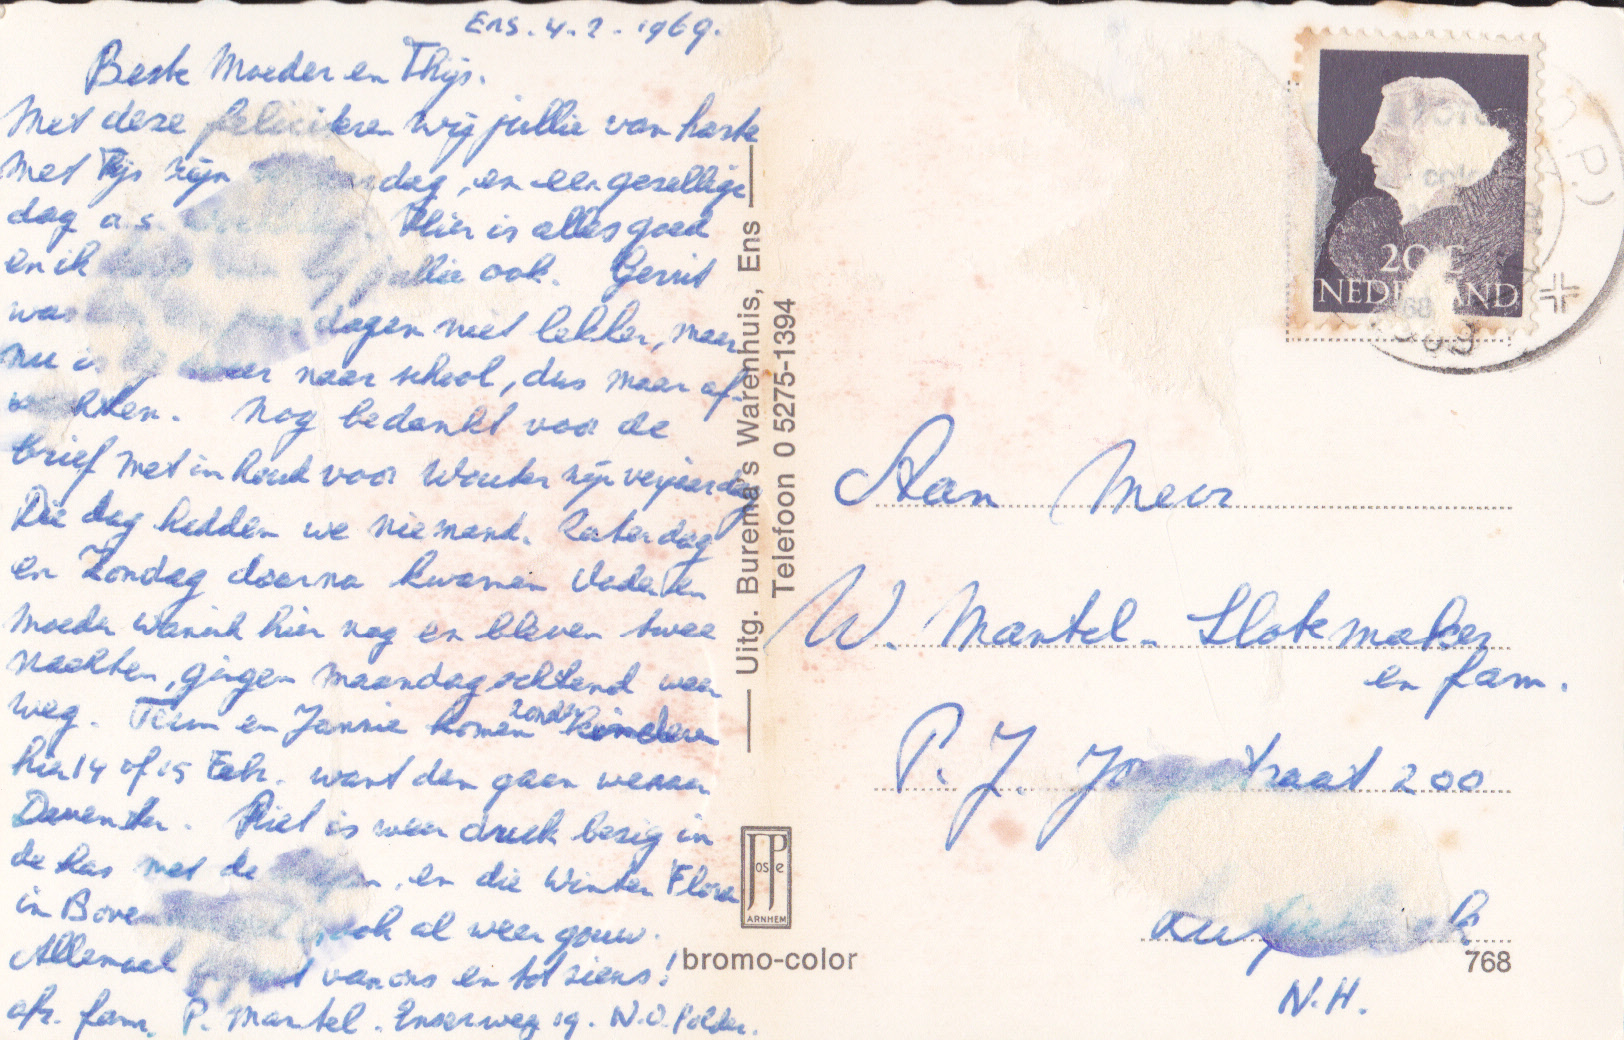 Ens. 4.2.1969.
Beste Moeder en Thijs.
Met deze feliciteren wij jullie van harte
met Thijs zijn dag, en een gezellige
dag a.s. Hier is alles goed
en ik jullie ook. Gerrit
was dagen niet lekker, maar
nu is weer naar school, dus maar af-
wachten. Nog bedankt voor de
brief met inhoud voor Wouter zijn verjaardag
Die dag hadden we niemand. Zaterdag
en Zondag daarna kwamen Vader en
Moeder hier nog en bleven twee
nachten, gingen maandagochtend weer
weg. Teun en Jannie komen zonder kinderen
hier 14 of 15 Feb. want dan gaan we naar
Deventer. Piet is weer druk bezig in
de kas met de , en die Winter Flora
in Boven ook al weer gouw.
Allemaal van ons en tot ziens!
afz. fam. P. Mantel. Enserweg 19. N.O. Polder.
Uitg. Burema's Warenhuis, Ens
Telefoon 0 5275-1394
JosPe
ARNHEM
bromo-color
20 C
NEDERLAND
Aan Mevr
W. Mantel - Slotemaker
en fam.
P. J. straat 200
N.H.
768